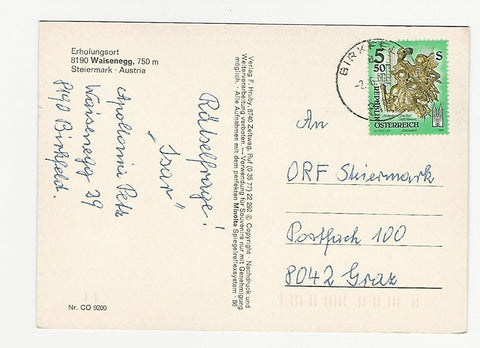 Erholungsort
8190 Waisenegg, 750 m
Steiermark · Austria
Rätselfrage!
„Isar"
Apollonia Petz
Waisenegg 29
8190 Birkfeld.
Nr. CO 9200
Verlag F. Hruby, 8740 Zeltweg, Ruf (0 35 77) 22 292 © Copyright · Nachdruck und
Weiterverarbeitung verboten. — Verwendung für Souvenirs nur mit Genehmigung
möglich. · Alle Aufnahmen mit dem perfekten Minolta Spiegelreflexsystem · 86
BIRKF
5 S
50
REPUBLIK
ÖSTERREICH
An
ORF Steiermark
Postfach 100
8042 Graz